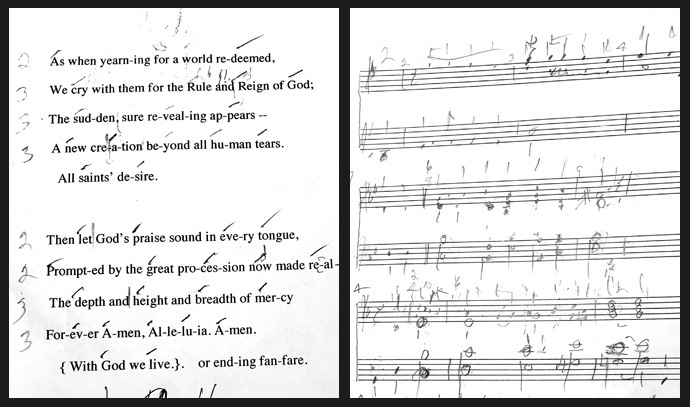 2 As when yearn-ing for a world re-deemed,
3 We cry with them for the Rule and Reign of God;
3 The sud-den, sure re-veal-ing ap-pears --
3 A new cre-a-tion be-yond all hu-man tears.
All saints' de-sire.
2 Then let God's praise sound in eve-ry tongue,
2 Prompt-ed by the great pro-ces-sion now made re-al-
3 The depth and height and breadth of mer-cy
3 For-ev-er A-men, Al-le-lu-ia. A-men.
{ With God we live.}. or end-ing fan-fare.